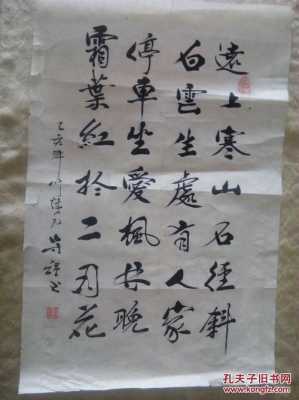 遠上寒山石徑斜
白雲生處有人家
停車坐愛楓林晚
霜葉紅於二月花
乙亥年
书
孔夫子旧书网